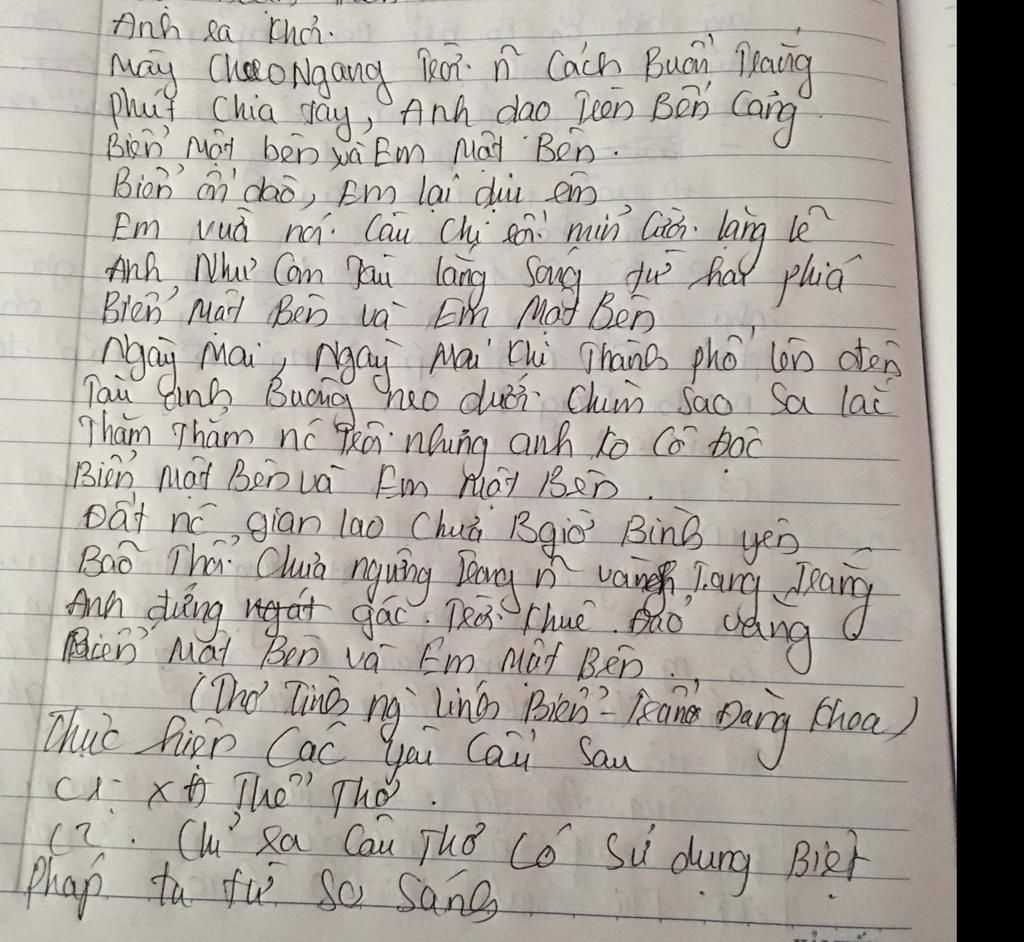 Anh ra khơi.
Mây Cheo Ngang Trời n~ Cách Buồn Trắng
phút Chia Tay, Anh dạo Trên Bến Cảng
Biển Một bên và Em Một Bên.
Biển ồn ào, Em lại dịu êm
Em vừa nói Câu Chi rồi mỉn Cười lặng lẽ
Anh Như Con Tàu lắng Sóng từ hai phía
Biển Một Bên và Em Một Bên
Ngày Mai, Ngày Mai Khi Thành phố lên đèn
Tàu Anh Buông neo dưới Chùm Sao Sa lắc
Thăm Thẳm nc Trời nhưng anh ko Cô Độc
Biển Một Bên và Em Một Bên.
Đất nc, gian lao Chưa Bgiờ Bình yên
Bão Thổi Chưa ngừng Trong n~ vành Tang Trắng
Anh đứng gác. Trời khuê. Đảo vắng
Biển Một Bên và Em Một Bên.,
(Thơ Tình ng` lính Biển - Trần Đăng Khoa)
Thực hiện Các yêu Cầu Sau
C1: XĐ Thể Thơ.
C2. Chỉ Ra Câu Thơ Có Sử dụng Biện
Pháp tu từ So Sánh